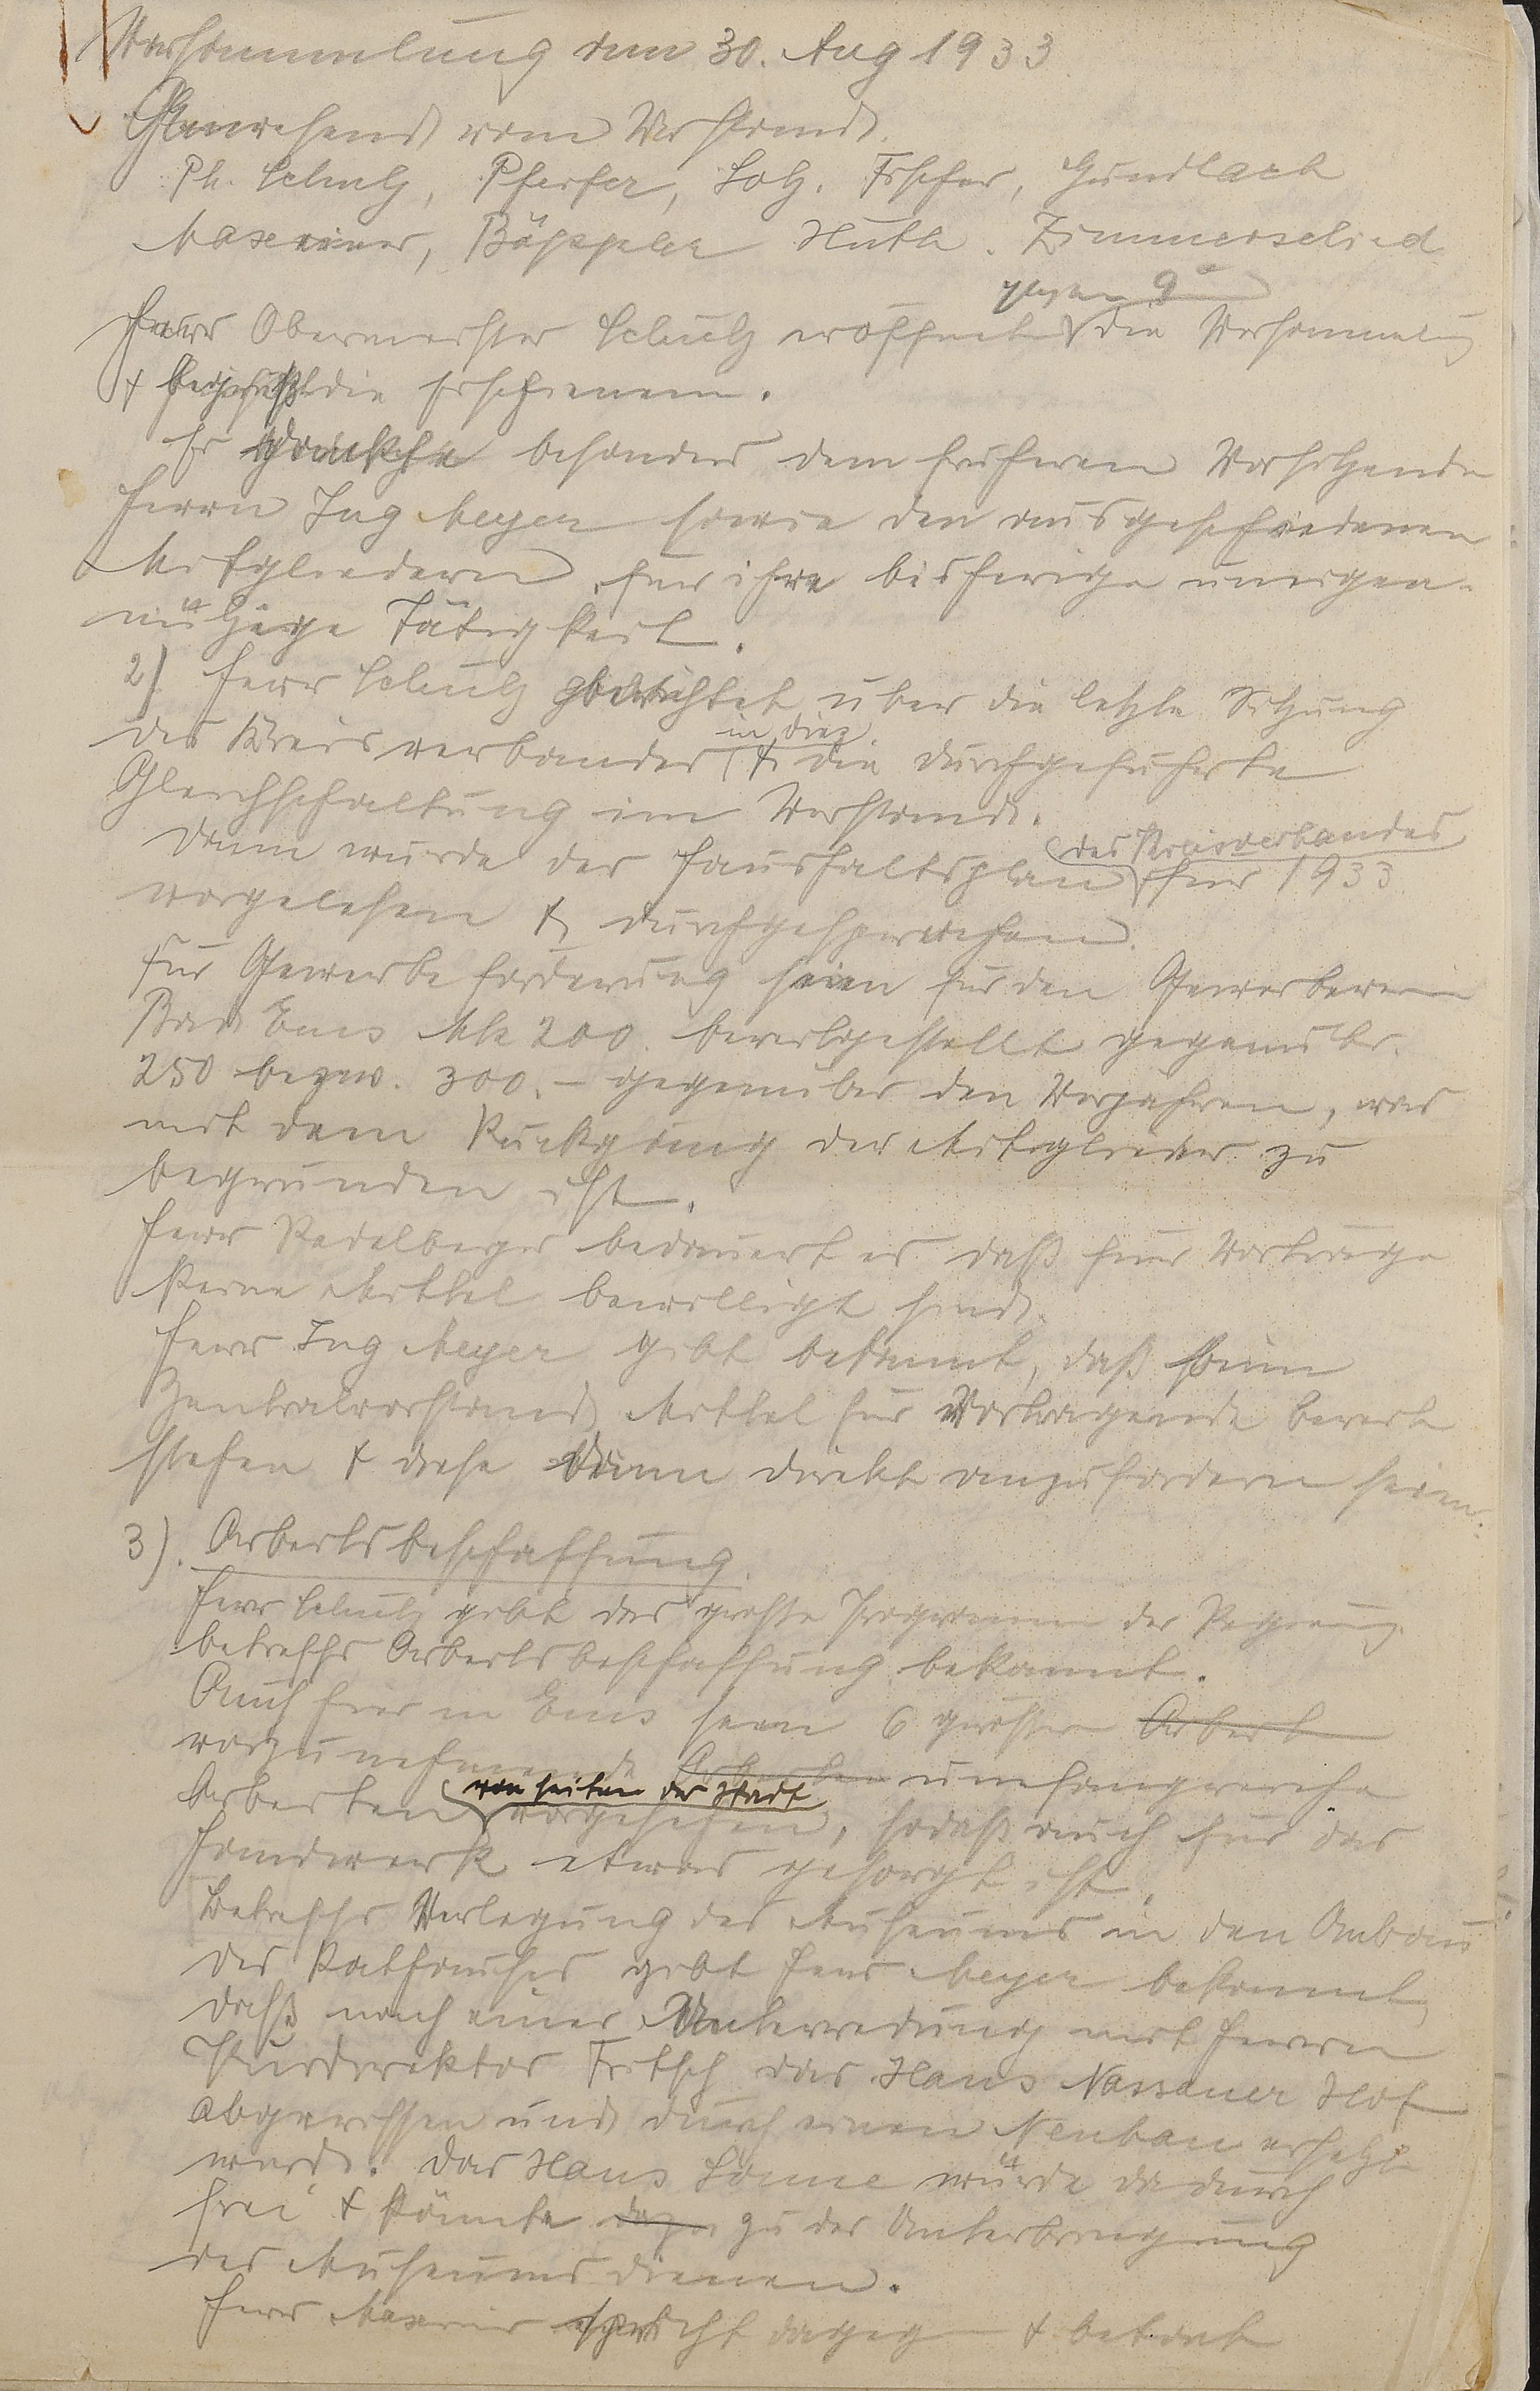 Versammlung am 30. Aug 1933
Anwesend vom Vorstand.
Ph. Schulz, Pfeifer, Lotz. Fischer, Gundlach
Maxeiner, Bäppler Huth. Zimmerschied
gegen 9
Herr Obermeister Schulz eröffnet die Versammlung
& begrüßt die Erschienenen.
Er dankte besonders dem früheren Vorsitzenden
Herrn Ing Meyer sowie den ausgeschiedenen
Mitgliedern für ihre bisherige uneigen-
nützige Tätigkeit.
2) Herr Schulz berichtet über die letzte Sitzung
in Diez
des Kreisverbandes & die durchgeführte
Gleichschaltung im Vorstand.
des Kreisverbandes
Dann wurde der Haushaltsplan für 1933
vorgelesen & durchgesprochen.
Für Gewerbeförderung seien für den Gewerbeverein
Bad Ems Mk 200. bereitgestellt gegenüber
250 bezw. 300.– gegenüber den Vorjahren, was
mit dem Rückgang der Mitglieder zu
begründen ist.
Herr Redelberger bedauert es daß für Vorträge
keine Mittel bewilligt sind.
Herr Ing Meyer gibt bekannt, daß beim
Zentralvorstand Mittel für Vortragende bereit
stehen & diese dann direkt anzufordern seien.
3). Arbeitsbeschaffung.
Herr Schulz gibt das große Programm der Regierung
betreffs Arbeitsbeschaffung bekannt.
Auch hier in Ems seien 6 größere Arbeit
vorzunehmende Arbeiten umfangreiche
von seiten der Stadt
Arbeiten vorgesehen, sodaß auch für das
Handwerk etwas gesorgt ist.
Betreffs Verlegung des Museums in den Anbau
des Rathauses gibt Herr Meyer bekannt,
daß nach einer Unterredung mit Herrn
Kurdirektor Fritsch das Haus Nassauer Hof
abgerissen und durch einen Neubau ersetzt
werde. Das Haus Sonne würde dadurch
frei & könnte dazu zu der Unterbringung
des Museums dienen.
Herr Maxeiner spricht dagegen & betont